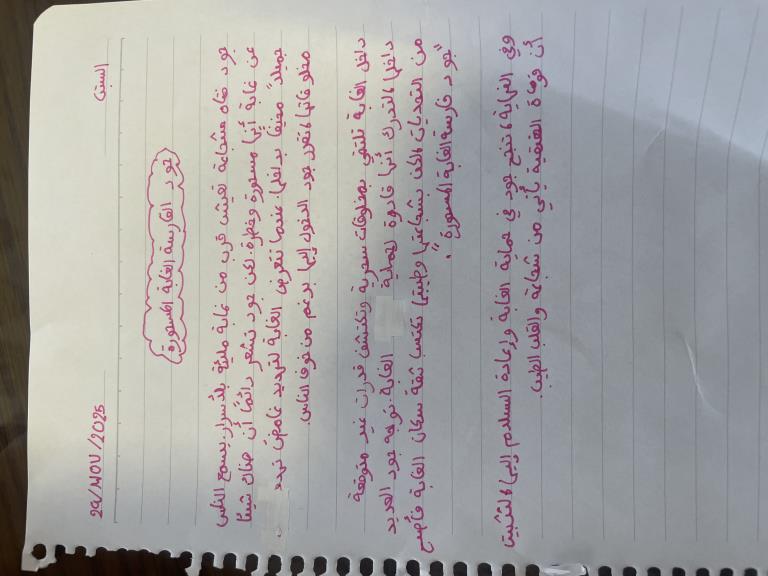 السبت
29/NOV/2025
جود الفارسة الغابة المسحورة
جود فتاة شجاعة تعيش قرب من غابة مليئة بلأسرار يسمع الناس
عن غابة أنها مسحورة وخطرة لكن جود تشعر دائماً أن هناك شيئاً
جميلاً مخفياً بداخلها عندما تتعرض الغابة لتهديد غامض تهدد
مخلوقاتها، تقرر جود الدخول إليها برغم من خوف الناس.
داخل الغابة تلتقي بمخلوقات سحرية وتكتشف قدرات غير متوقعة
داخلها، لتدرك أنها قادرة لحماية الغابة. تواجه جود العديد
من التحديات، ولكن شجاعتها وطيبتها تكتسب ثقة سكان الغابة فأصبح
"جود حارسة الغابة المسحورة".
وفي النهاية، تنجح جود في حماية الغابة وإعادة السلام إليها، لتثبت
أن قوة الحقيقية يأتي من شجاعة والقلب الطيب.